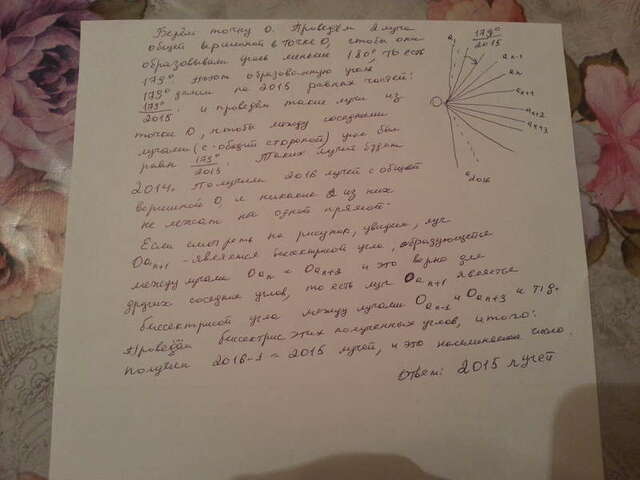 Берём точку О. Проведём 2 луча
общей вершиной в точке О, чтобы они
образовывали угол меньше 180°, то есть
179°. образованную угол,
179° делим на 2015 равных частей:
179°
2015. и проведём такие лучи из
точки О, чтобы между соседними
лучами (с общей стороной) угол был
равен 179°/2015. Таких лучей будет
2014. Получили 2016 лучей с общей
вершиной О и никакие 2 из них
не лежат на одной прямой.
Если смотреть на рисунок, увидим, луч
Oan+1 - является биссектрисой угла, образующегося
между лучами Oan и Oan+2 и это верно для
других соседние углов, то есть луч Oan+1 является
биссектрисой угла между лучами Oan-1 и Oan+3 и т.д.
Проведём биссектрис этих полученных углов, итого:
получим 2016-1=2015 лучей, и это наименьшее число.
Ответ: 2015 лучей
a1
179°
2015
an-1
an
an+1
an+2
an+3
a2016
O